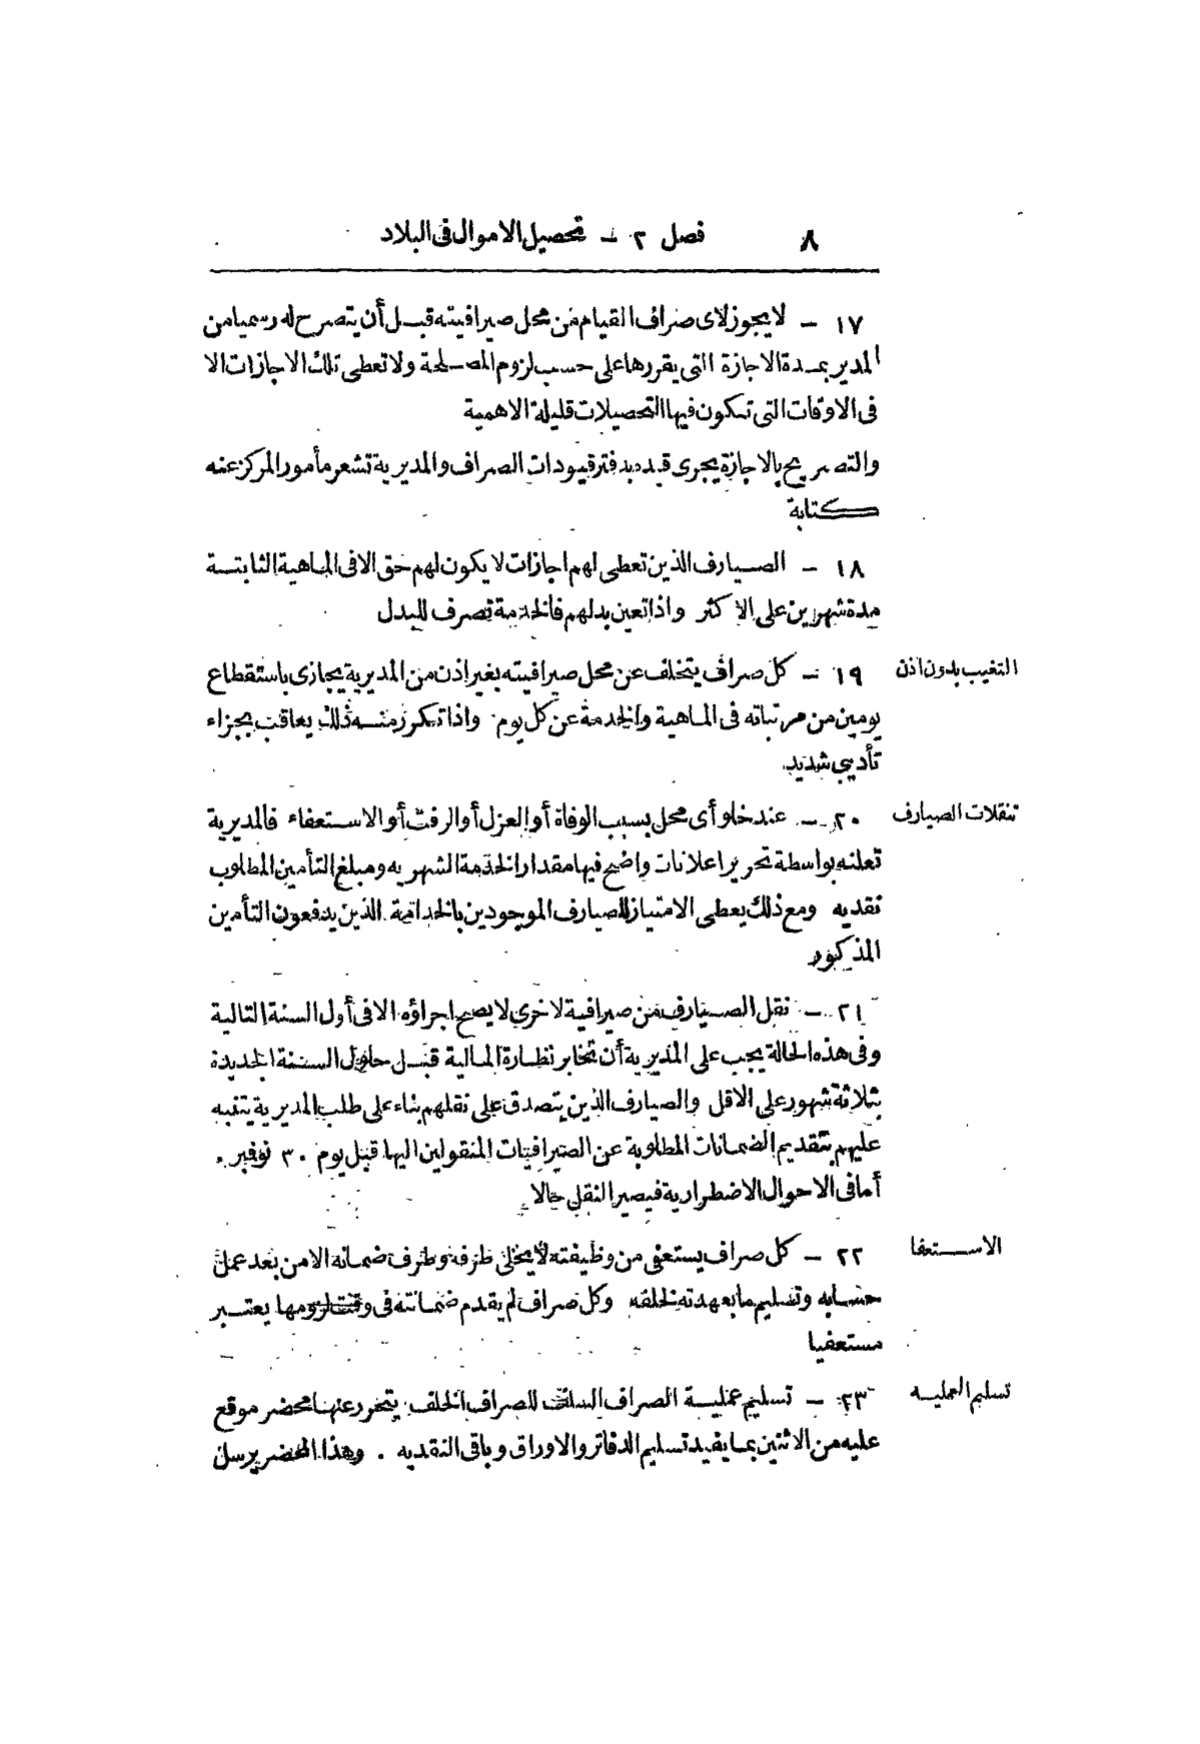 ٨ فصل ٢ – تحصيل الاموال فى البلاد
١٧ – لا يجوز لاى صراف القيام من محل صيرافيته قبل أن يتصرح له رسميا من
المدير بمدة الاجازة التى يقررها على حسب لزوم المصلحة ولا تعطى تلك الاجازات الا
فى الاوقات التى تكون فيها التحصيلات قليلة الاهمية
والتصريح بالاجازة يجرى قيده بدفتر قيودات الصراف والمديرية تشعر مأمور المركز عنه
كتابة
١٨ – الصيارف الذين تعطى لهم اجازات لا يكون لهم حق الا فى الماهية الثابتة
مدة شهرين على الاكثر واذا تعين بدلهم فالخدمة تصرف للبدل
التغيب بدون اذن
١٩ – كل صراف يتخلف عن محل صيرافيته بغير اذن من المديرية يجازى باستقطاع
يومين من مرتباته فى الماهية والخدمة عن كل يوم واذا تكرر منه ذلك يعاقب بجزاء
تأديبى شديد
تنقلات الصيارف
٢٠ – عند خلو أى محل بسبب الوفاة أو العزل أو الرفت أو الاستعفاء فالمديرية
تعلنه بواسطة تحرير اعلانات واضح فيها مقدار الخدمة الشهريه ومبلغ التأمين المطلوب
نقديه ومع ذلك يعطى الامتياز للصيارف الموجودين بالخدامة الذين يدفعون التأمين
المذكور
٢١ – نقل الصيارف من صيرافية لاخرى لا يصح اجراؤه الا فى أول السنة التالية
وفى هذه الحالة يجب على المديرية أن تخابر نظارة المالية قبل حلول السنة الجديدة
بثلاثة شهور على الاقل والصيارف الذين يتصدق على نقلهم بناء على طلب المديرية يتنبه
عليهم بتقديم الضمانات المطلوبة عن الصيرافيات المنقولين اليها قبل يوم ٣٠ نوفمبر .
أما فى الاحوال الاضطرارية فيصير النقل حالا
الاستعفا
٢٢ – كل صراف يستعفى من وظيفته لا يخلى طرفه وطرف ضمانه الا من بعد عمل
حسابه وتسليم ما بعهدته لخلفه وكل صراف لم يقدم ضمانته فى وقت لزومها يعتبر
مستعفيا
تسليم العمليه
٢٣ – تسليم عملية الصراف السلف للصراف الخلف يتحرر عنها محضر موقع
عليه من الاثنين بما يفيد تسليم الدفاتر والاوراق وباقى النقديه . وهذا المحضر يرسل